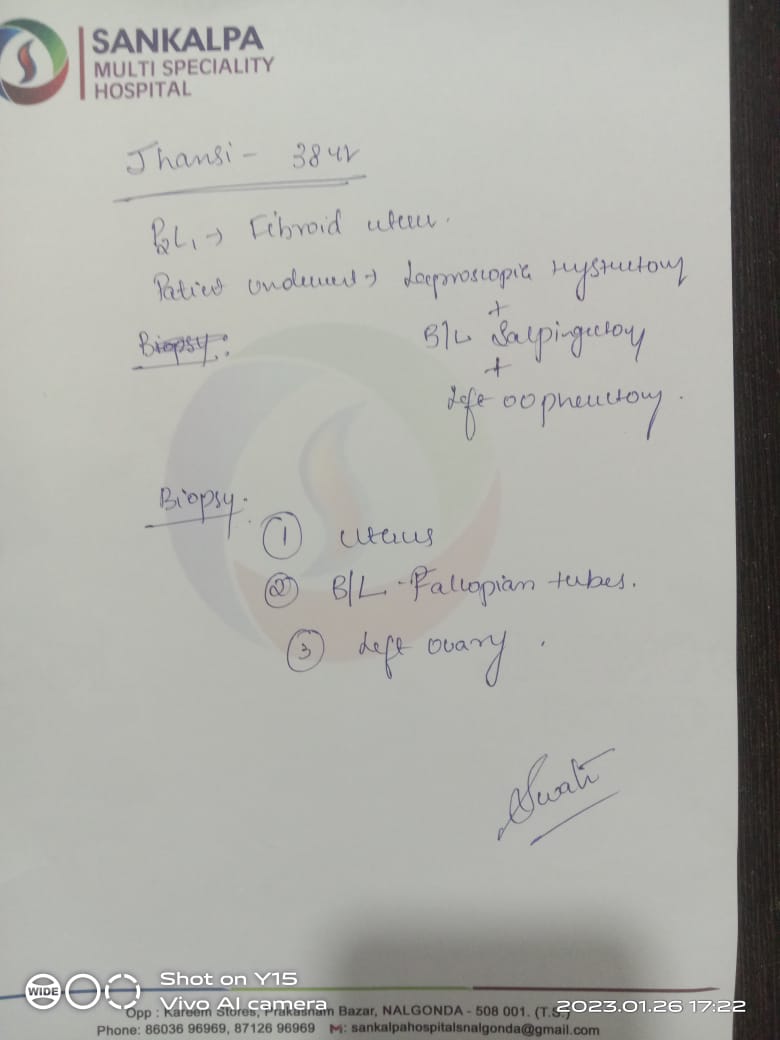 SANKALPA
MULTI SPECIALITY
HOSPITAL
Jhansi - 38 yr
P2L1 → Fibroid uterus.
Patient underwent → Laproscopic Hystrectomy
+
Biopsy:
B/L Salpingectomy
+
Left oophrectomy.
Biopsy:
① uterus
② B/L - Fallopian tubes.
③ Left ovary.
Swati
WIDE
Shot on Y15
Vivo AI camera
2023.01.26 17:22
Opp : Kareem Stores, Prakasham Bazar, NALGONDA - 508 001. (T.S.)
Phone: 86036 96969, 87126 96969 M: sankalpahospitalsnalgonda@gmail.com